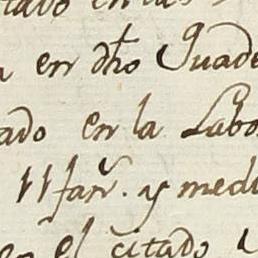 en dho Quade
ado en la Labo
11 fan. y medi
en el citado